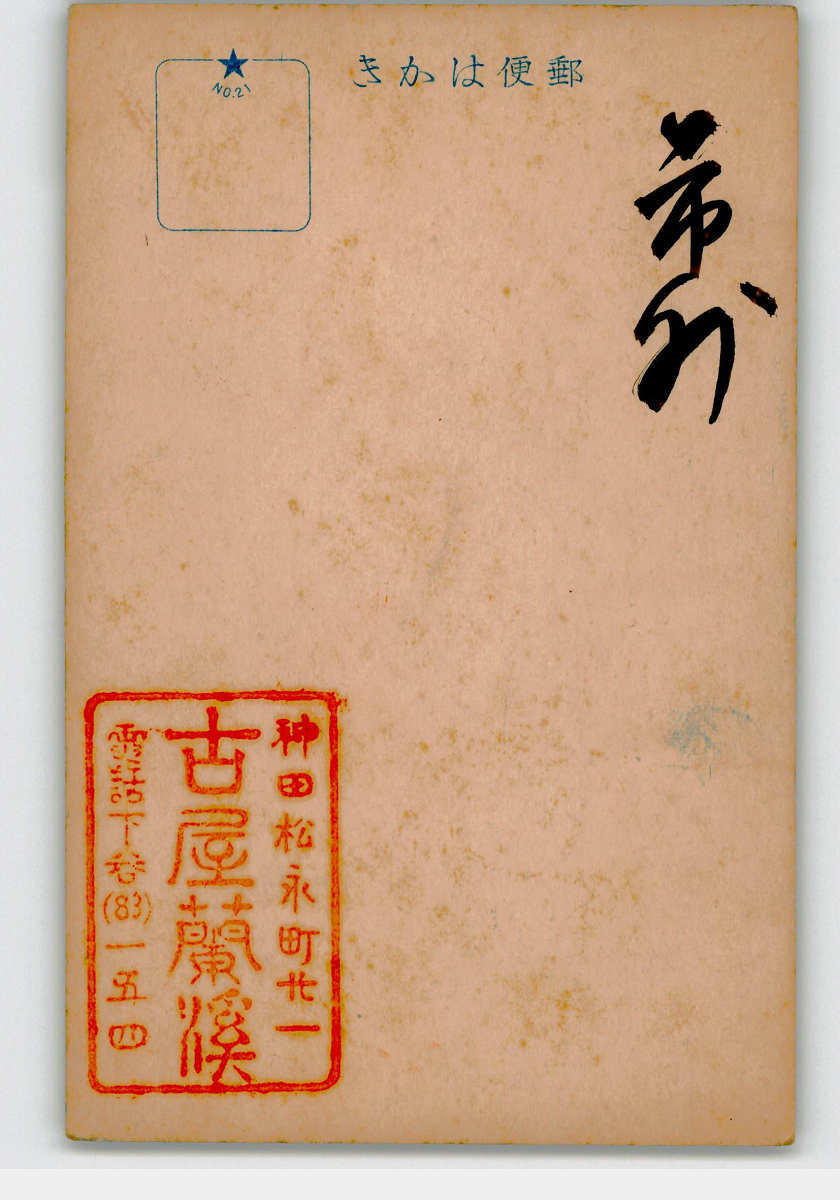 きかは便郵
NO.21
神田松永町廿一
古屋蘭溪
電話下谷(83)一五四